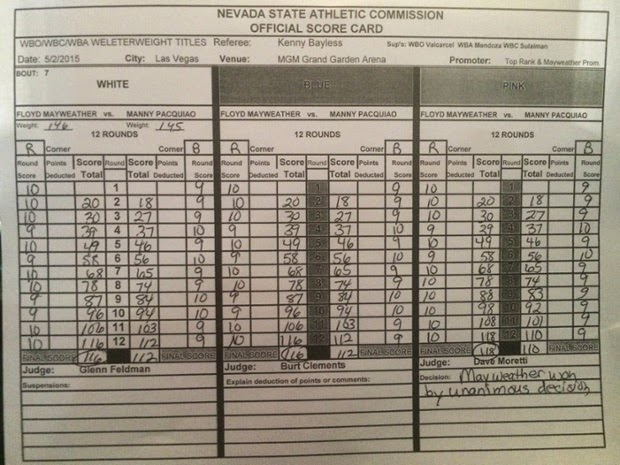 NEVADA STATE ATHLETIC COMMISSION
OFFICIAL SCORE CARD
WBO/WBC/WBA WELETERWEIGHT TITLES Referee: Kenny Bayless Sup's: WBO Valcarcel WBA Mendoza WBC Sulaiman
Date: 5/2/2015 City: Las Vegas Venue: MGM Grand Garden Arena Promoter: Top Rank & Mayweather Prom.
BOUT: 7
WHITE BLUE PINK
FLOYD MAYWEATHER vs. MANNY PACQUIAO FLOYD MAYWEATHER vs. MANNY PACQUIAO FLOYD MAYWEATHER vs. MANNY PACQUIAO
Weight: 146 Weight: 145
12 ROUNDS 12 ROUNDS 12 ROUNDS
R Corner Corner B R Corner Corner B R Corner Corner B
Round Points Score Round Score Points Round Round Points Score Round Score Points Round Round Points Score Round Score Points Round
Score Deducted Total Total Deducted Score Score Deducted Total Total Deducted Score Score Deducted Total Total Deducted Score
10 1 9 10 9 10 9
10 20 2 18 9 10 20 18 9 10 20 18 9
10 30 3 27 9 10 30 27 9 10 30 27 9
9 39 4 37 10 9 39 37 10 9 39 37 10
10 49 5 46 9 10 49 46 9 10 49 46 9
9 58 6 56 10 9 58 56 10 9 58 56 10
10 68 7 65 9 10 68 65 9 10 68 65 9
10 78 8 74 9 10 78 74 9 10 78 74 9
9 87 9 84 10 9 87 84 10 10 88 83 9
9 96 10 94 10 9 96 94 10 10 98 92 9
10 106 11 103 9 10 106 103 9 10 108 101 9
10 116 12 112 9 10 116 112 9 10 118 110 9
FINAL SCORE 116 112 FINAL SCORE FINAL SCORE 116 112 FINAL SCORE FINAL SCORE 118 110 FINAL SCORE
Judge: Glenn Feldman Judge: Burt Clements Judge: Dave Moretti
Suspensions: Explain deduction of points or comments: Decision: Mayweather won
by unanimous decision